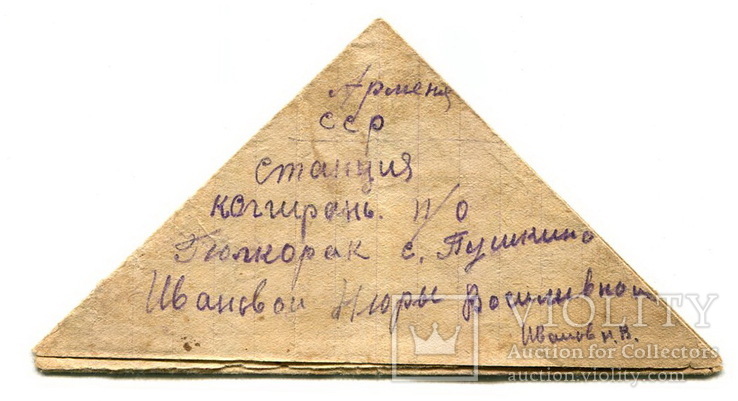 Армения
ССР
станция
Колгирань. п/о
Гюлкорак с. Пушкино
Ивановой Нюры Василивной
Иванов Н.В.
VIOLITY
Auction for Collectors
auction.violity.com